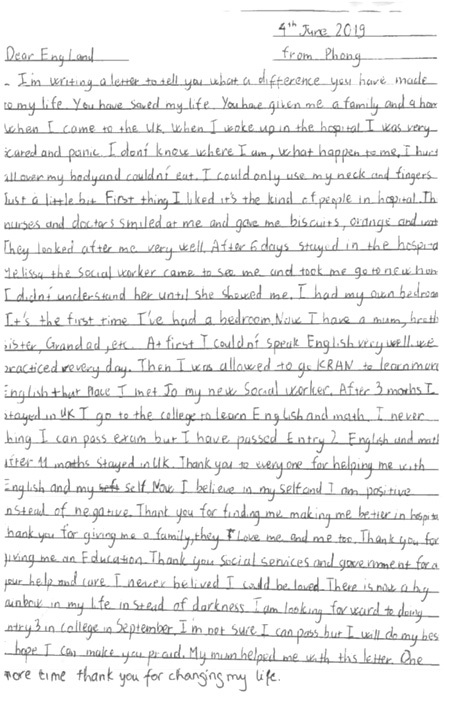 4th June 2019
Dear England from Phong
- I'm writing a letter to tell you what a difference you have made
to my life. You have saved my life. You have given me a family and a hom
when I came to the UK. When I woke up in the hospital I was very
scared and panic. I don't know where I am, what happen to me, I hurt
all over my body and couldn't eat. I could only use my neck and fingers
Just a little bit. First thing I liked it's the kind of people in hospital. Th
nurses and doctors smiled at me and gave me biscuits, orange and wat
They looked after me very well. After 6 days stayed in the hospita
Melissa the social worker came to see me and took me go to new hom
I didn't understand her until she showed me. I had my own bedroom
It's the first time I've had a bedroom. Now I have a mum, broth
sister, Grandad, etc. At first I couldn't speak English very well. we
practiced every day. Then I was allowed to go KRAN to learn mor
English that place I met Jo my new social worker. After 3 months I
stayed in UK I go to the college to learn English and math. I never
thing I can pass exam but I have passed Entry 2 English and math
after 11 moths stayed in UK. Thank you to everyone for helping me with
English and my self. Now I believe in my self and I am positive
instead of negative. Thank you for finding me, making me better in hospita
thank you for giving me a family, they love me and me too. Thank you for
giving me an Education. Thank you Social services and government for a
your help and care. I never belived I could be loved. There is now a big
rainbow in my life in stead of darkness. I am looking forward to doing
entry 3 in college in September. I'm not sure I can pass but I will do my bes
I hope I can make you proud. My mum helped me with ths letter. One
more time thank you for changing my life.